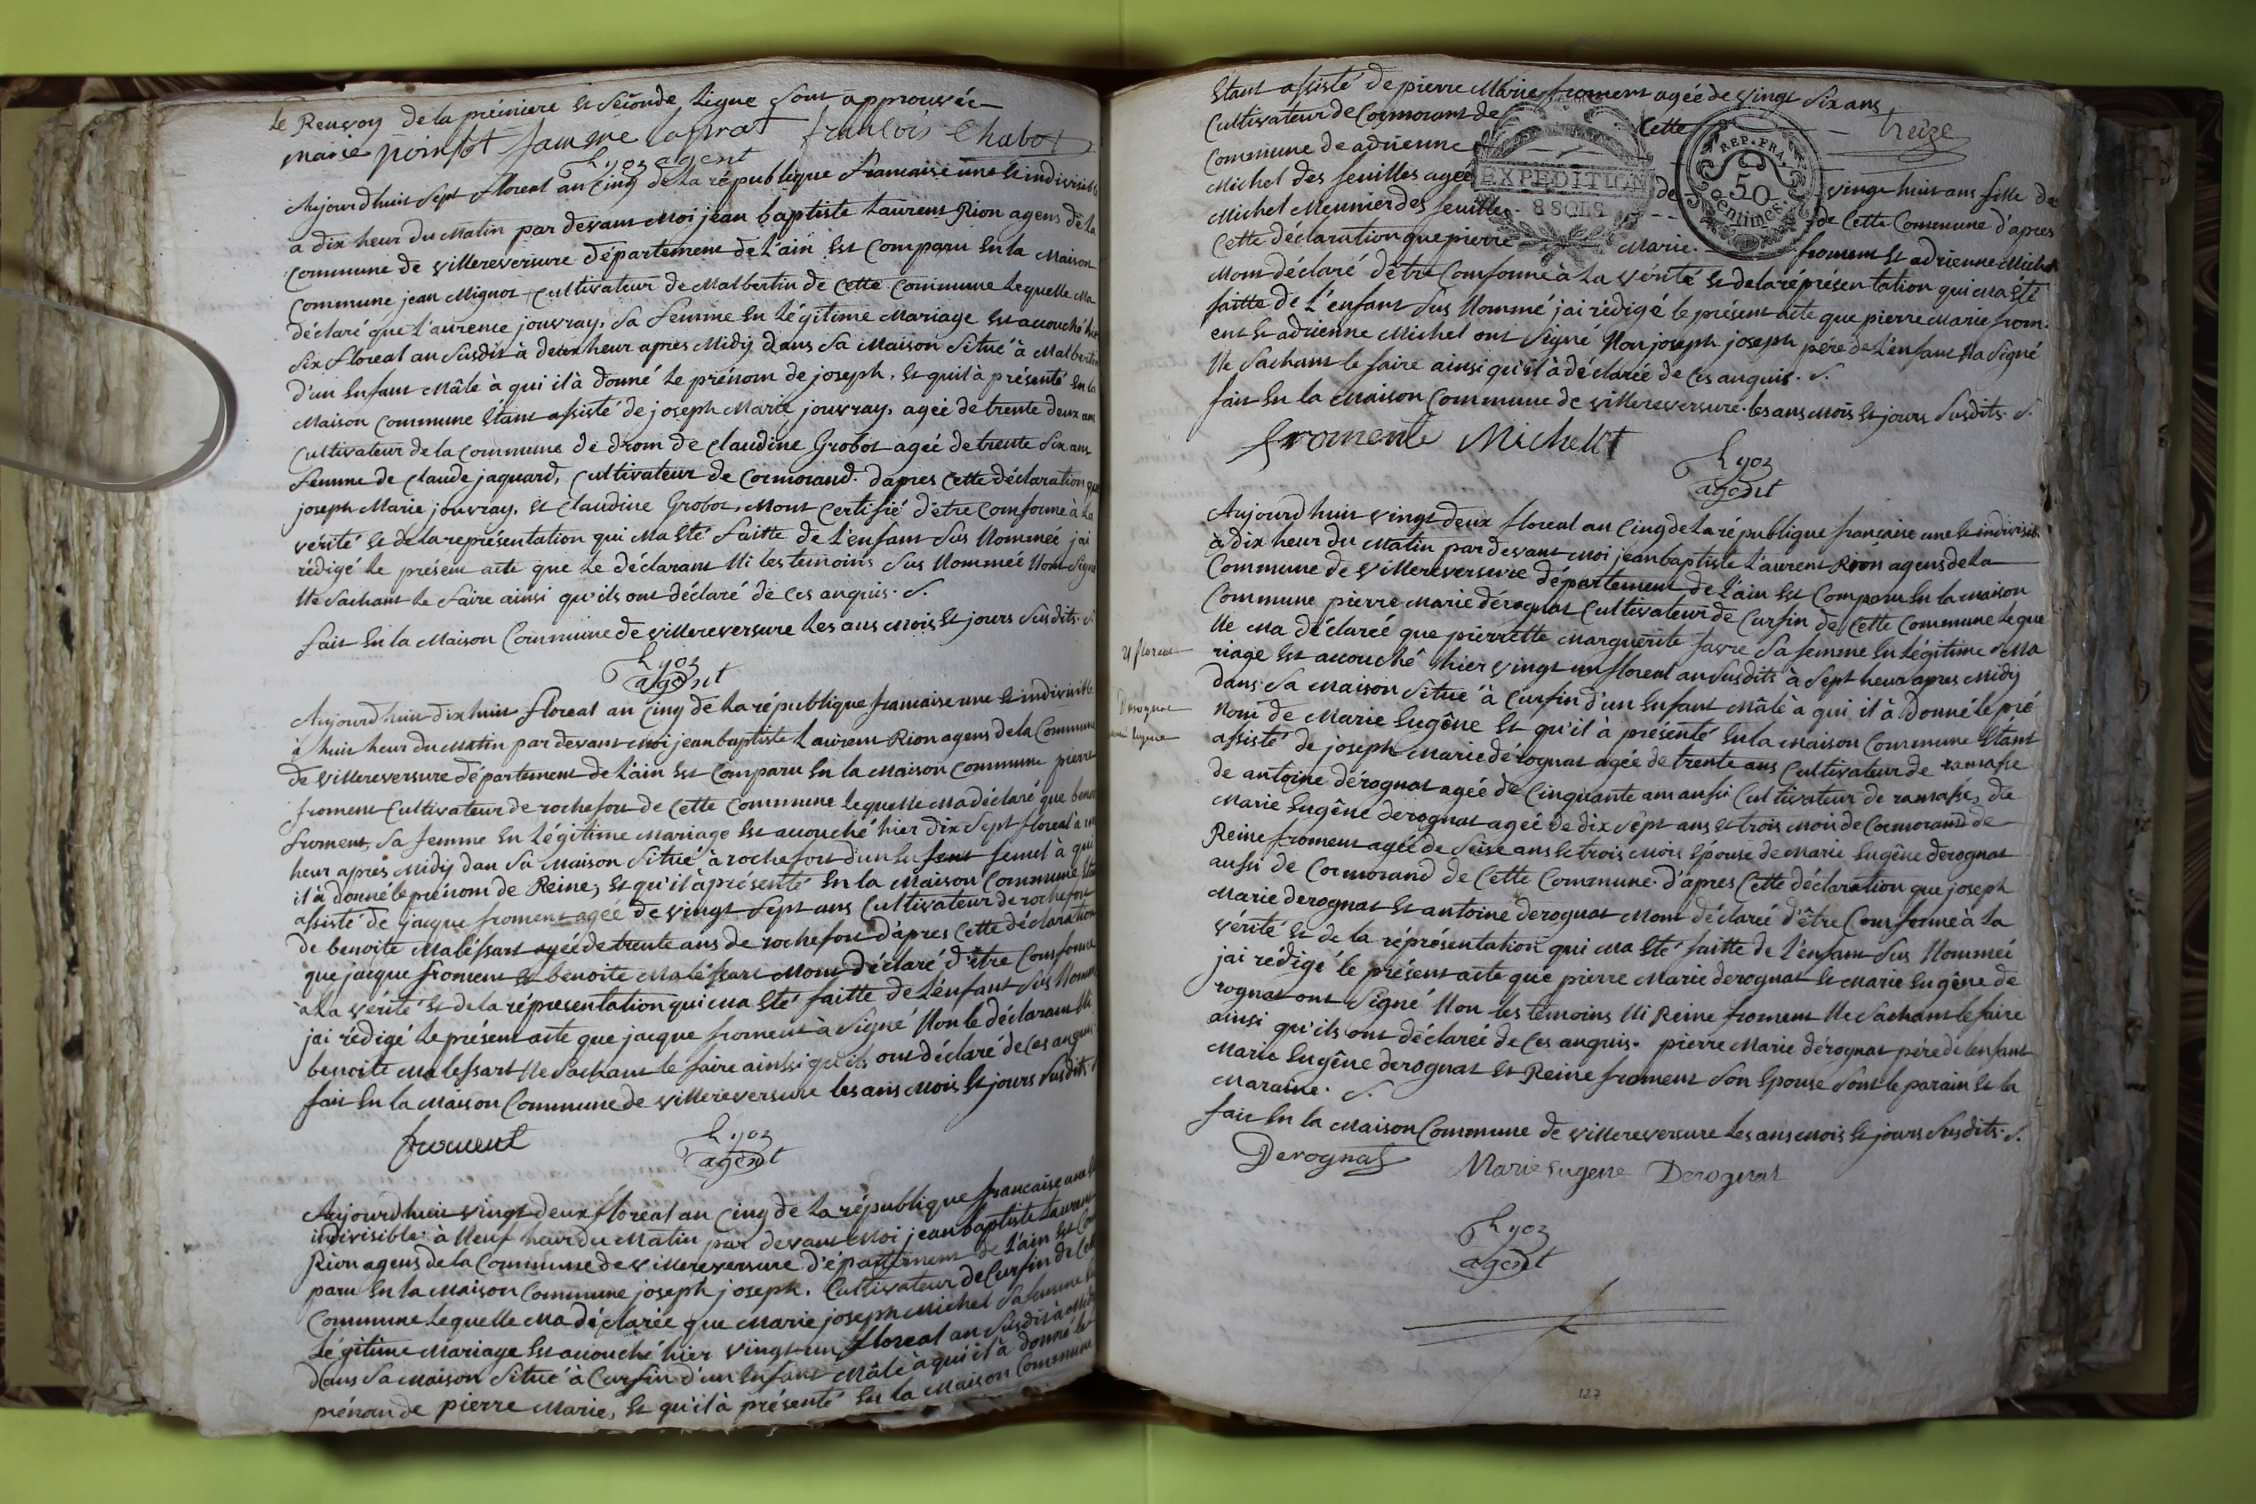 Le Renvoy de la prémiere et seconde Ligne sont approuvée
marie poinsot jeanne françois Chabot
Ryon agent
Aujourdhuit sept floreal an Cinq de la république francaise une et indivisible
a dix heur du Matin par devant Moi jean baptiste Laurent Rion agent de la
Commune de villereversure département de L'ain est Comparu En la Maison
Commune jean Mignot Cultivateur de Malbertin de Cette Commune Lequelle Ma
déclaré que L'aurence jouvray, Sa femme En Légitime Mariage est accouché hier
Six floreal an Susdit à deux heur apres Midy dans Sa Maison Situé à Malbertin
d'un Enfant Mâle à qui il à donné Le prénom de joseph, et quil à présenté En la
Maison Commune Etant assisté de joseph Marie jouvray, ageé de trente deux ans
Cultivateur de la Commune de drom de Claudine Grobot ageé de trente Six ans
femme de Claude jaquard, Cultivateur de Cormorand. d'apres Cette déclaration que
joseph Marie jouvray, et Claudine Grobot, Mont Certifié d'être Comforme à La
vérité et de la représentation qui Ma Eté faitte de L'enfant Sus Nommeé j'ai
rédigé Le présent acte que Le déclarant Ni Les temoins Sus Nommeé Nont Signé
Ne Sachant Le faire ainsi qu'ils ont déclaré de Ces anquis. S.
fait En la Maison Commune de villereversure Les ans Mois et jours Susdits. S.
Ryon
agent
Aujourdhuit dix huit floreal an Cinq de La république francaise une et indivisible
à huit heur du Matin par devant Moi jean baptiste Laurent Rion agent de la Commune
de villereversure département de L'ain est Comparu En la Maison Commune pierre
froment Cultivateur de rochefort de Cette Commune lequelle Ma déclaré que
froment, Sa femme En Légitime Mariage est accouché hier dix Sept floreal à
heur apres Midy dan Sa Maison Situé à rochefort d'un Enfent femel à qui
il à donné le prénom de Reine, et qu'il à présenté En la Maison Commune
assisté de jacque froment ageé de vingt Sept ans Cultivateur de rochefort
de benoite Malessart ageé de trente ans de rochefort d'apres Cette déclaration
que jacque froment et benoite Malessart Mont déclaré d'être Comforme
à La vérité et de la répresentation qui Ma Eté faitte de L'enfant Sus Nommé
jai rédigé Le présent acte que jacque froment à Signé Non le déclarant Ni
benoite Malessart Ne Sachant le faire ainssi qu'ils ont déclaré de Ces anquis
fait En la Maison Commune de villereversure les ans Mois et jours Susdits. S
froment Ryon
agent
Aujourdhuit vingt deux floreal an Cinq de La république francaise une
indivisible à Neuf heur du Matin par devant Moi jean baptiste Laurent
Rion agent de la Commune de villereversure département de L'ain est Com
paru En la Maison Commune joseph joseph. Cultivateur de Curfin de Cette
Commune Lequelle Ma déclarée que Marie joseph Michel Sa femme
Légitime Mariage est accouché hier vingt un floreal an Susdit à Midy
dans Sa Maison Situé à Curfin d'un Enfant Mâle à qui il à donné le
prénom de pierre Marie, et qu'il à présenté En la Maison Commune
Etant assisté de pierre Marie froment ageé de vingt Six ans
treize
Cultivateur de Cormorant de Cette
Commune de adrienne
Michel des feuilles ageé de vingt huit ans fille de
Michel Meunier des feuilles. de Cette Commune d'apres
EXPEDITION
8 SOLS
REP. FRA.
50
centimes
Cette déclaration que pierre Marie froment et adrienne Michel
Mont déclaré d'être Comforme à La vérité et de la répresentation qui Ma Eté
faitte de L'enfant Sus Nommé jai rédigé le présent acte que pierre Marie from-
ent et adrienne Michel ont Signé Non joseph joseph père de L'enfant Na Signé
Ne Sachant le faire ainsi qu'il à déclarée de Ces anquis. S.
fait En la Maison Commune de villereversure. les ans Mois et jours Susdits. S.
froment Michel
Ryon
agent
Aujourdhuit vingt deux floreal an Cinq de La république française une et indivisib.
à dix heur du Matin par devant Moi jean baptiste L'aurent Rion agent de La
Commune de villereversure département de L'ain est Comparu En la Maison
Commune pierre Marie dérognat Cultivateur de Curfin de Cette Commune Leque
lle Ma déclarée que pierrette Marguerite favre Sa femme En Légitime Ma
21 floreal
riage est accouchê hier vingt un floreal an Susdits à Sept heur apres Midy
dans Sa Maison Situé à Curfin d'un Enfant Mâle à qui il à donné le pré
Derognat
marie Eugene
nom de Marie Eugêne et qu'il à présenté En la Maison Commune Etant
assisté de joseph Marie dérognat ageé de trente ans Cultivateur de ramasse
de antoine dérognat ageé de Cinquante an aussi Cultivateur de ramasse, de
Marie Eugêne derognat ageé de dix Sept ans et trois Mois de Cormorand de
Reine froment ageé de Seise ans et trois Mois Epouse de Marie Eugêne derognat
aussi de Cormorand de Cette Commune. d'apres Cette déclaration que joseph
Marie derognat et antoine derognat Mont déclarée d'être Comforme à La
vérité et de la répresentation qui Ma Eté faitte de L'énfant Sus Nommeé
jai rédigé le présent acte que pierre Marie derognat et Marie Eugêne de
rognat ont Signé Non les temoins Ni Reine froment Ne Sachant le faire
ainsi qu'ils ont déclarée de Ces anquis. pierre Marie dérognat pére de lenfant
Marie Eugêne derognat et Reine froment Son Epouse Sont le parain et la
Maraine. S.
fait En la Maison Commune de villereversure Les ans Mois et jours Susdits. S.
Derognat Marie Eugene Derognat
Ryon
agent
127